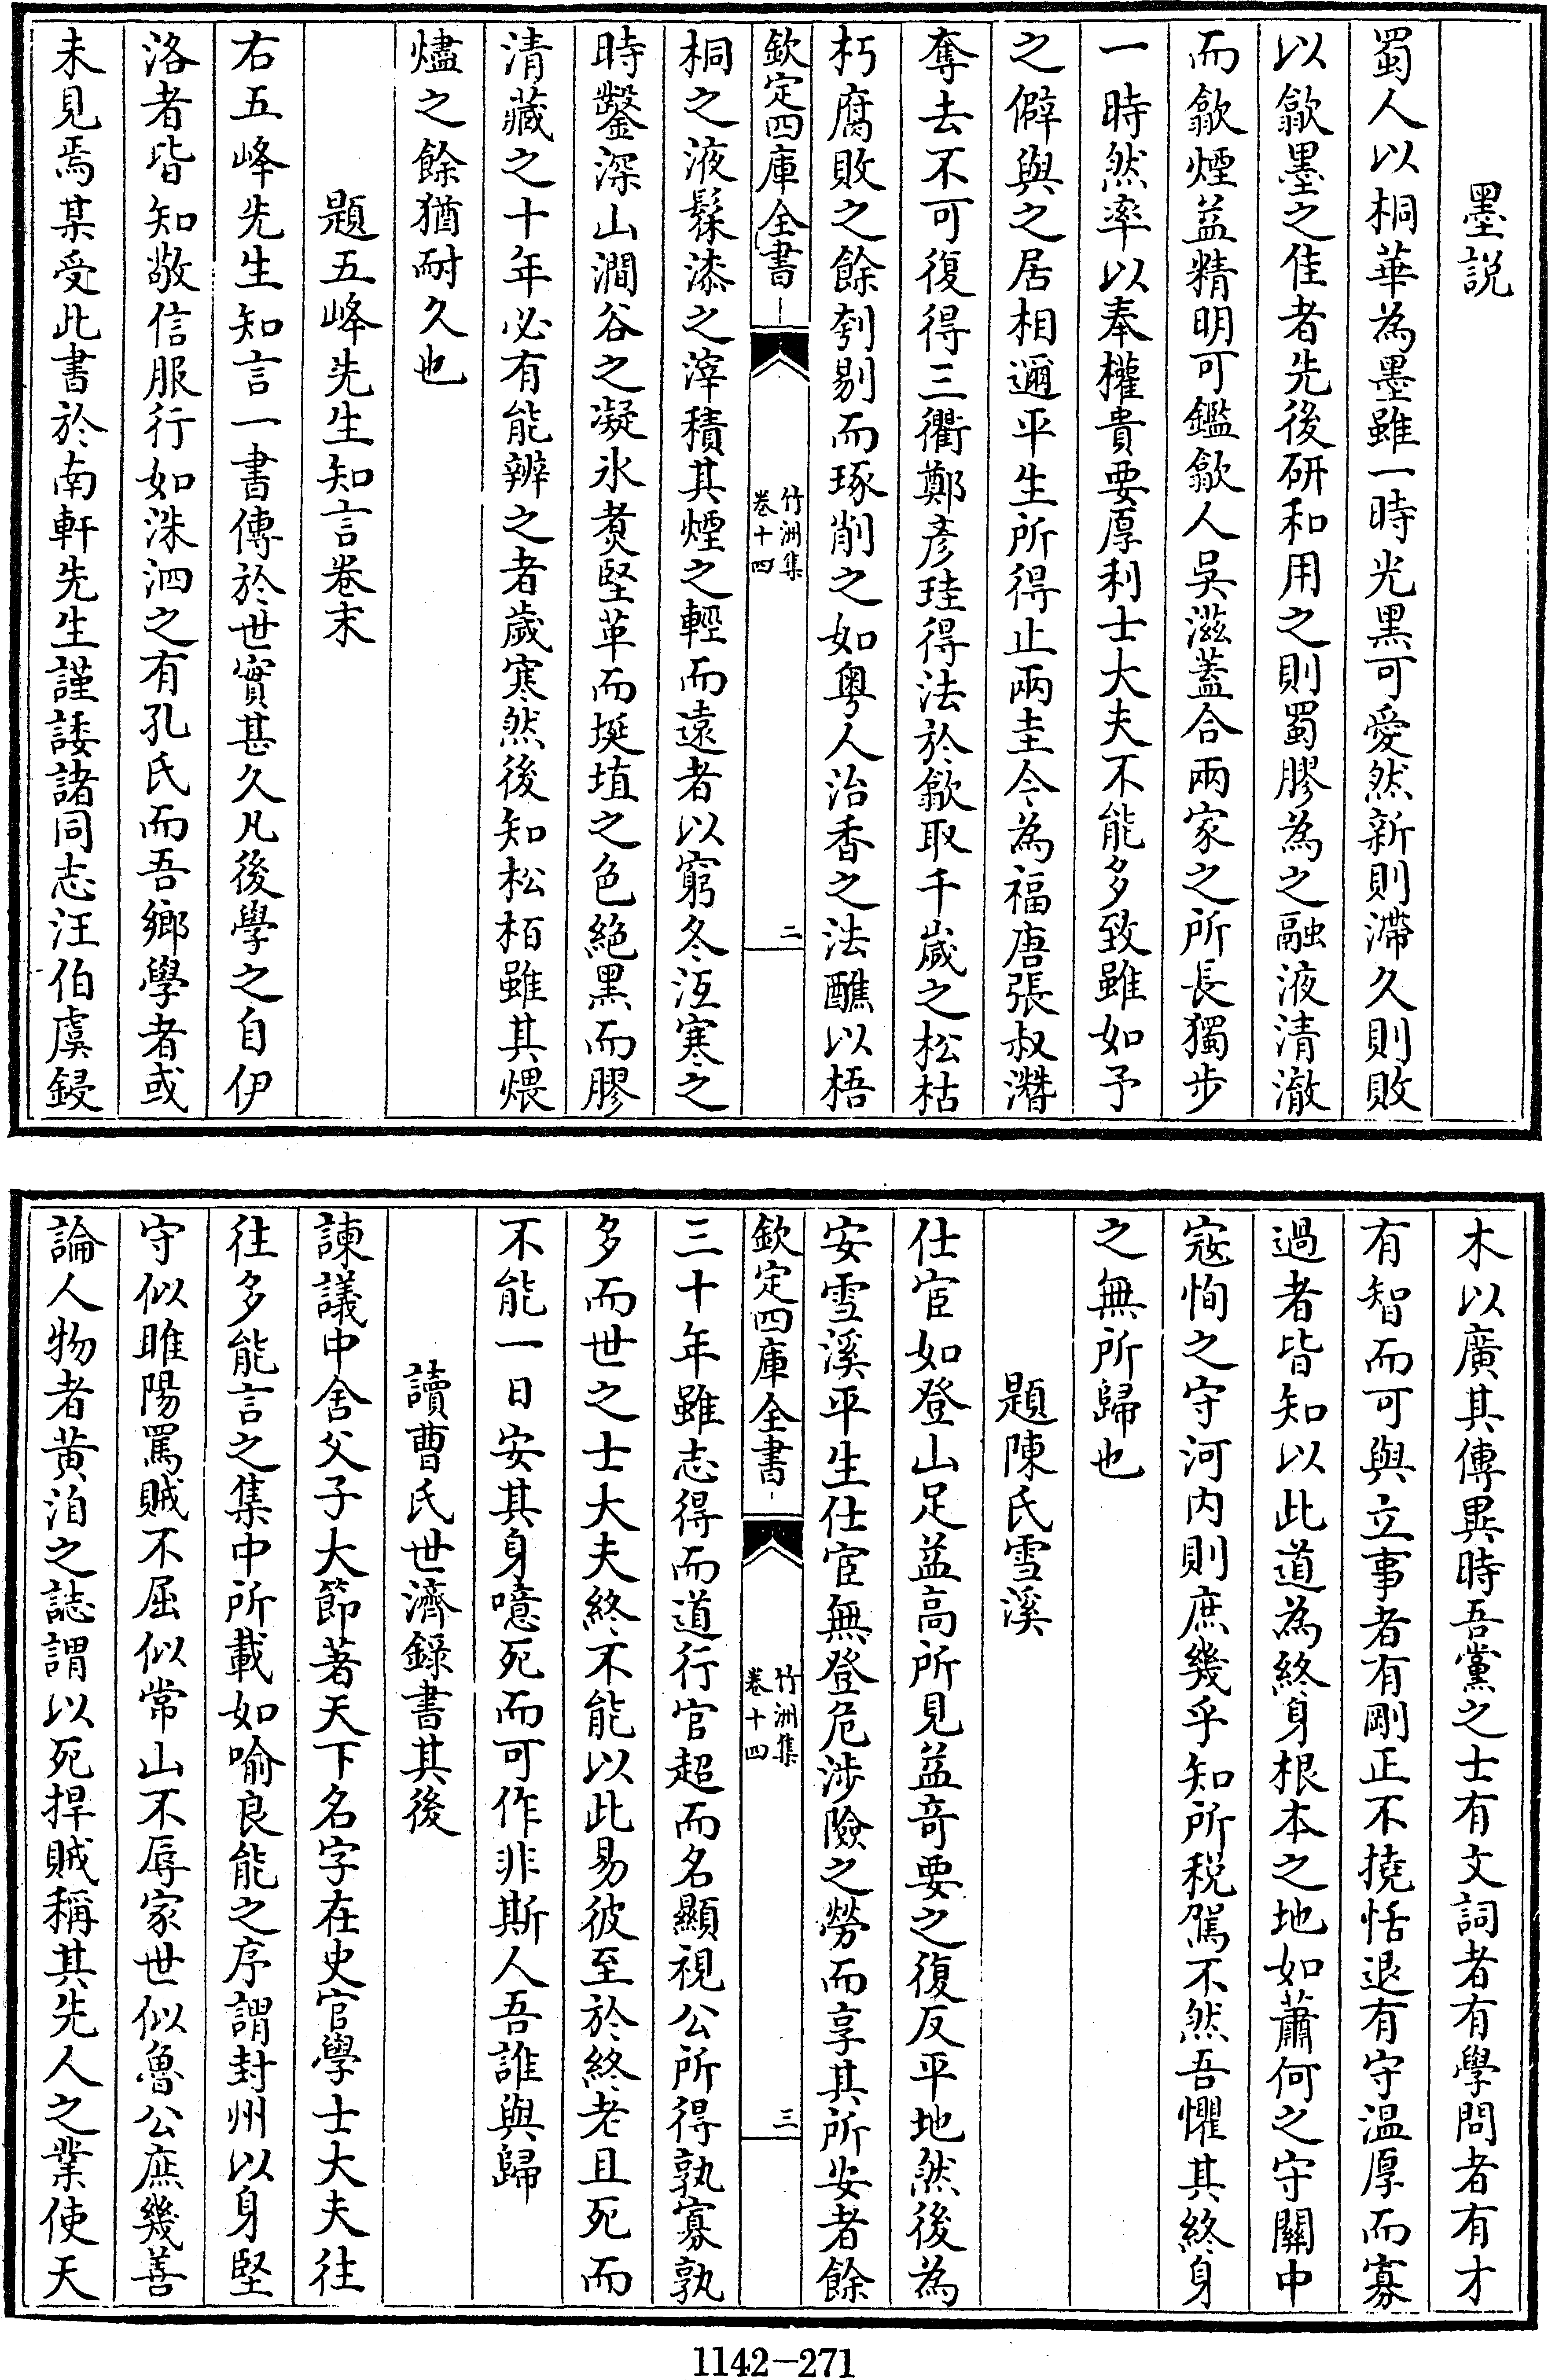 墨説
蜀人以桐華為墨雖一時光黒可愛然新則滯久則敗
以歙墨之佳者先後研和用之則蜀膠為之融液清澈
而歙煙益精明可鑑歙人吳滋蓋合兩家之所長獨步
一時然率以奉權貴要厚利士大夫不能多致雖如予
之僻與之居相邇平生所得止兩圭今為福唐張叔潛
奪去不可復得三衢鄭彦珪得法於歙取千歲之松枯
朽腐敗之餘刳剔而琢削之如粤人治香之法醮以梧
欽定四庫全書
竹洲集
卷十四
二
桐之液髹漆之滓積其煙之輕而遠者以窮冬沍寒之
時鑿深山澗谷之凝氷煑堅革而埏埴之色絶黑而膠
清藏之十年必有能辨之者歲寒然後知松栢雖其煨
燼之餘猶耐久也
題五峰先生知言卷末
右五峰先生知言一書傳於世實甚久凡後學之自伊
洛者皆知敬信服行如洙泗之有孔氏而吾鄉學者或
未見焉某受此書於南軒先生謹諉諸同志汪伯虞鋟
木以廣其傳異時吾黨之士有文詞者有學問者有才
有智而可與立事者有剛正不撓恬退有守温厚而寡
過者皆知以此道為終身根本之地如蕭何之守關中
寇恂之守河内則庶幾乎知所税駕不然吾懼其終身
之無所歸也
題陳氏雪溪
仕宦如登山足益高所見益竒要之復反平地然後為
安雪溪平生仕宦無登危涉險之勞而享其所安者餘
欽定四庫全書
竹洲集
卷十四
三
三十年雖志得而道行官超而名顯視公所得孰寡孰
多而世之士大夫終不能以此易彼至於終老且死而
不能一日安其身噫死而可作非斯人吾誰與歸
讀曹氏世濟錄書其後
諫議中舍父子大節著天下名字在史官學士大夫往
往多能言之集中所載如喻良能之序謂封州以身堅
守似睢陽罵賊不屈似常山不辱家世似魯公庶幾善
論人物者黄洎之誌謂以死捍賊稱其先人之業使天
1142-271